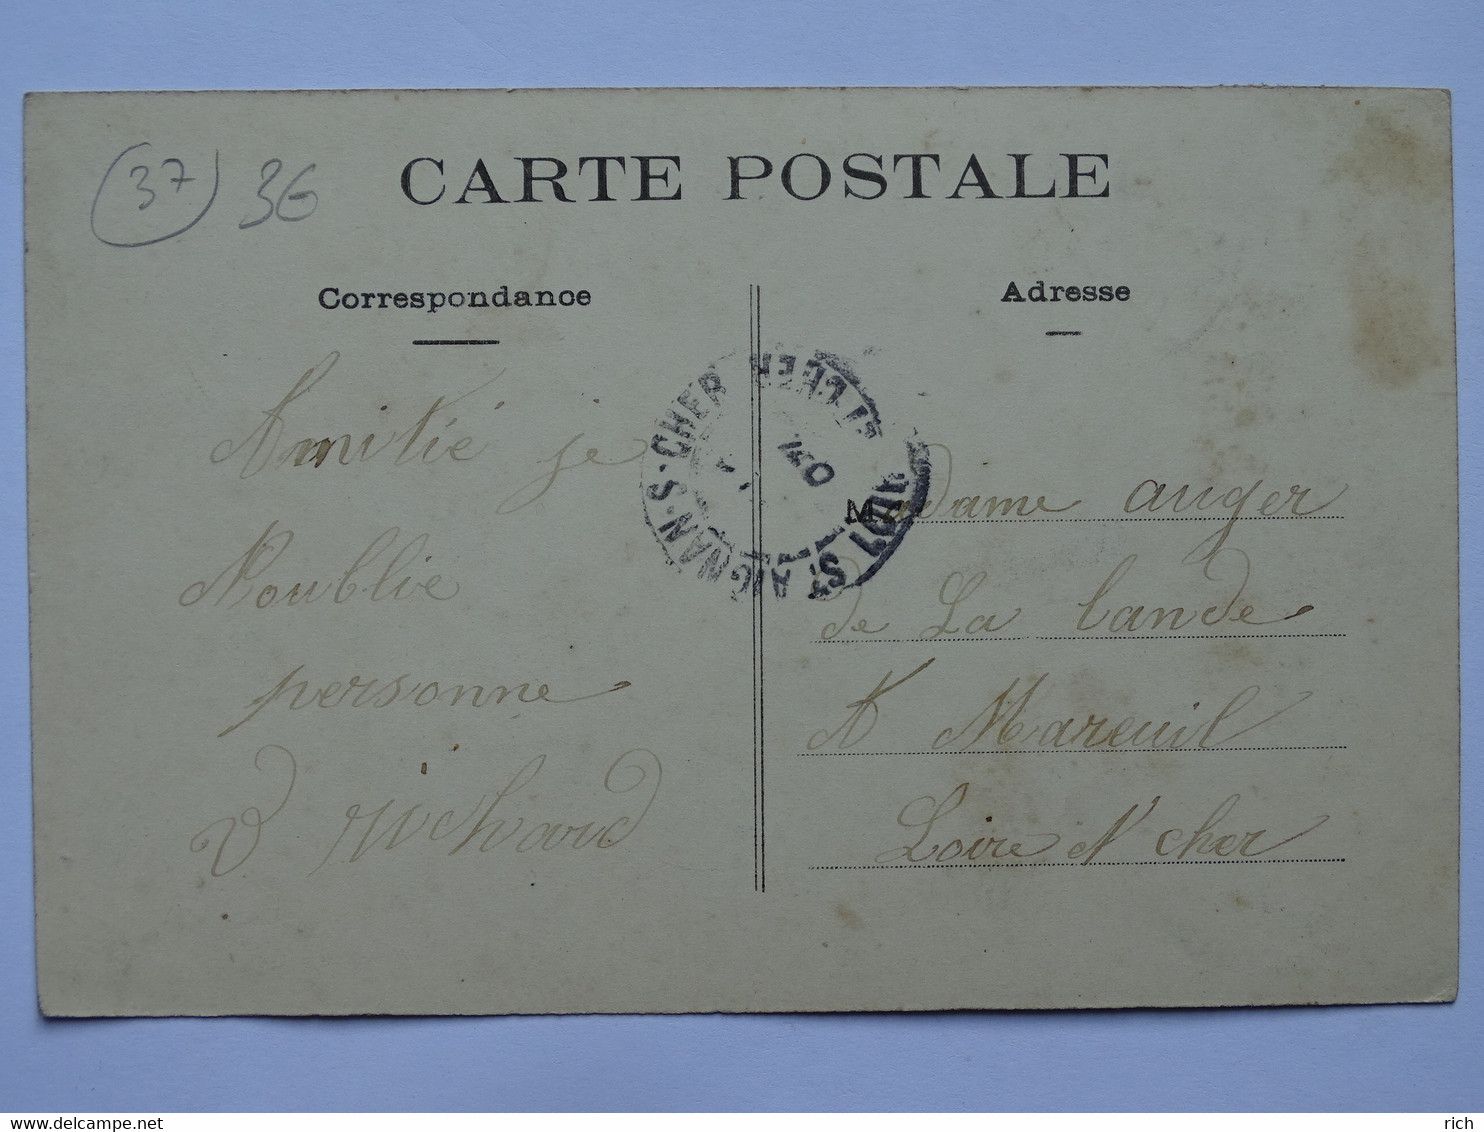 (37) 36
CARTE POSTALE
Correspondance
Amitié je
N'oublie
personne
V richard
Adresse
Madame auger
de La lande
A Mareuil
Loire et cher
ST AIGNAN-S-CHER LOIR ET CHER
www.delcampe.net
rich